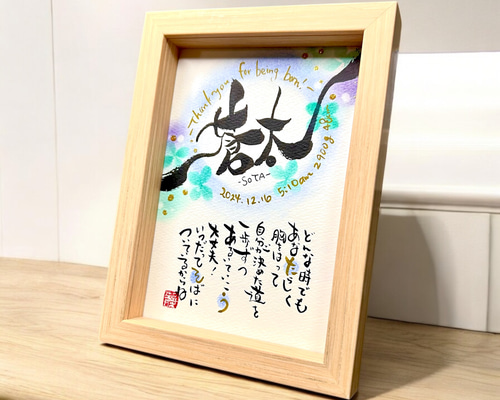 -Thank you for being born!-
蒼太
-SOTA-
2024.12.16 5:10am 2900g 48cm
どんな時でも
あなたらしく
胸をはって
自分が決めた道を
一歩ずつ
あるいていこう
大丈夫!
いつだってそばに
ついているからね